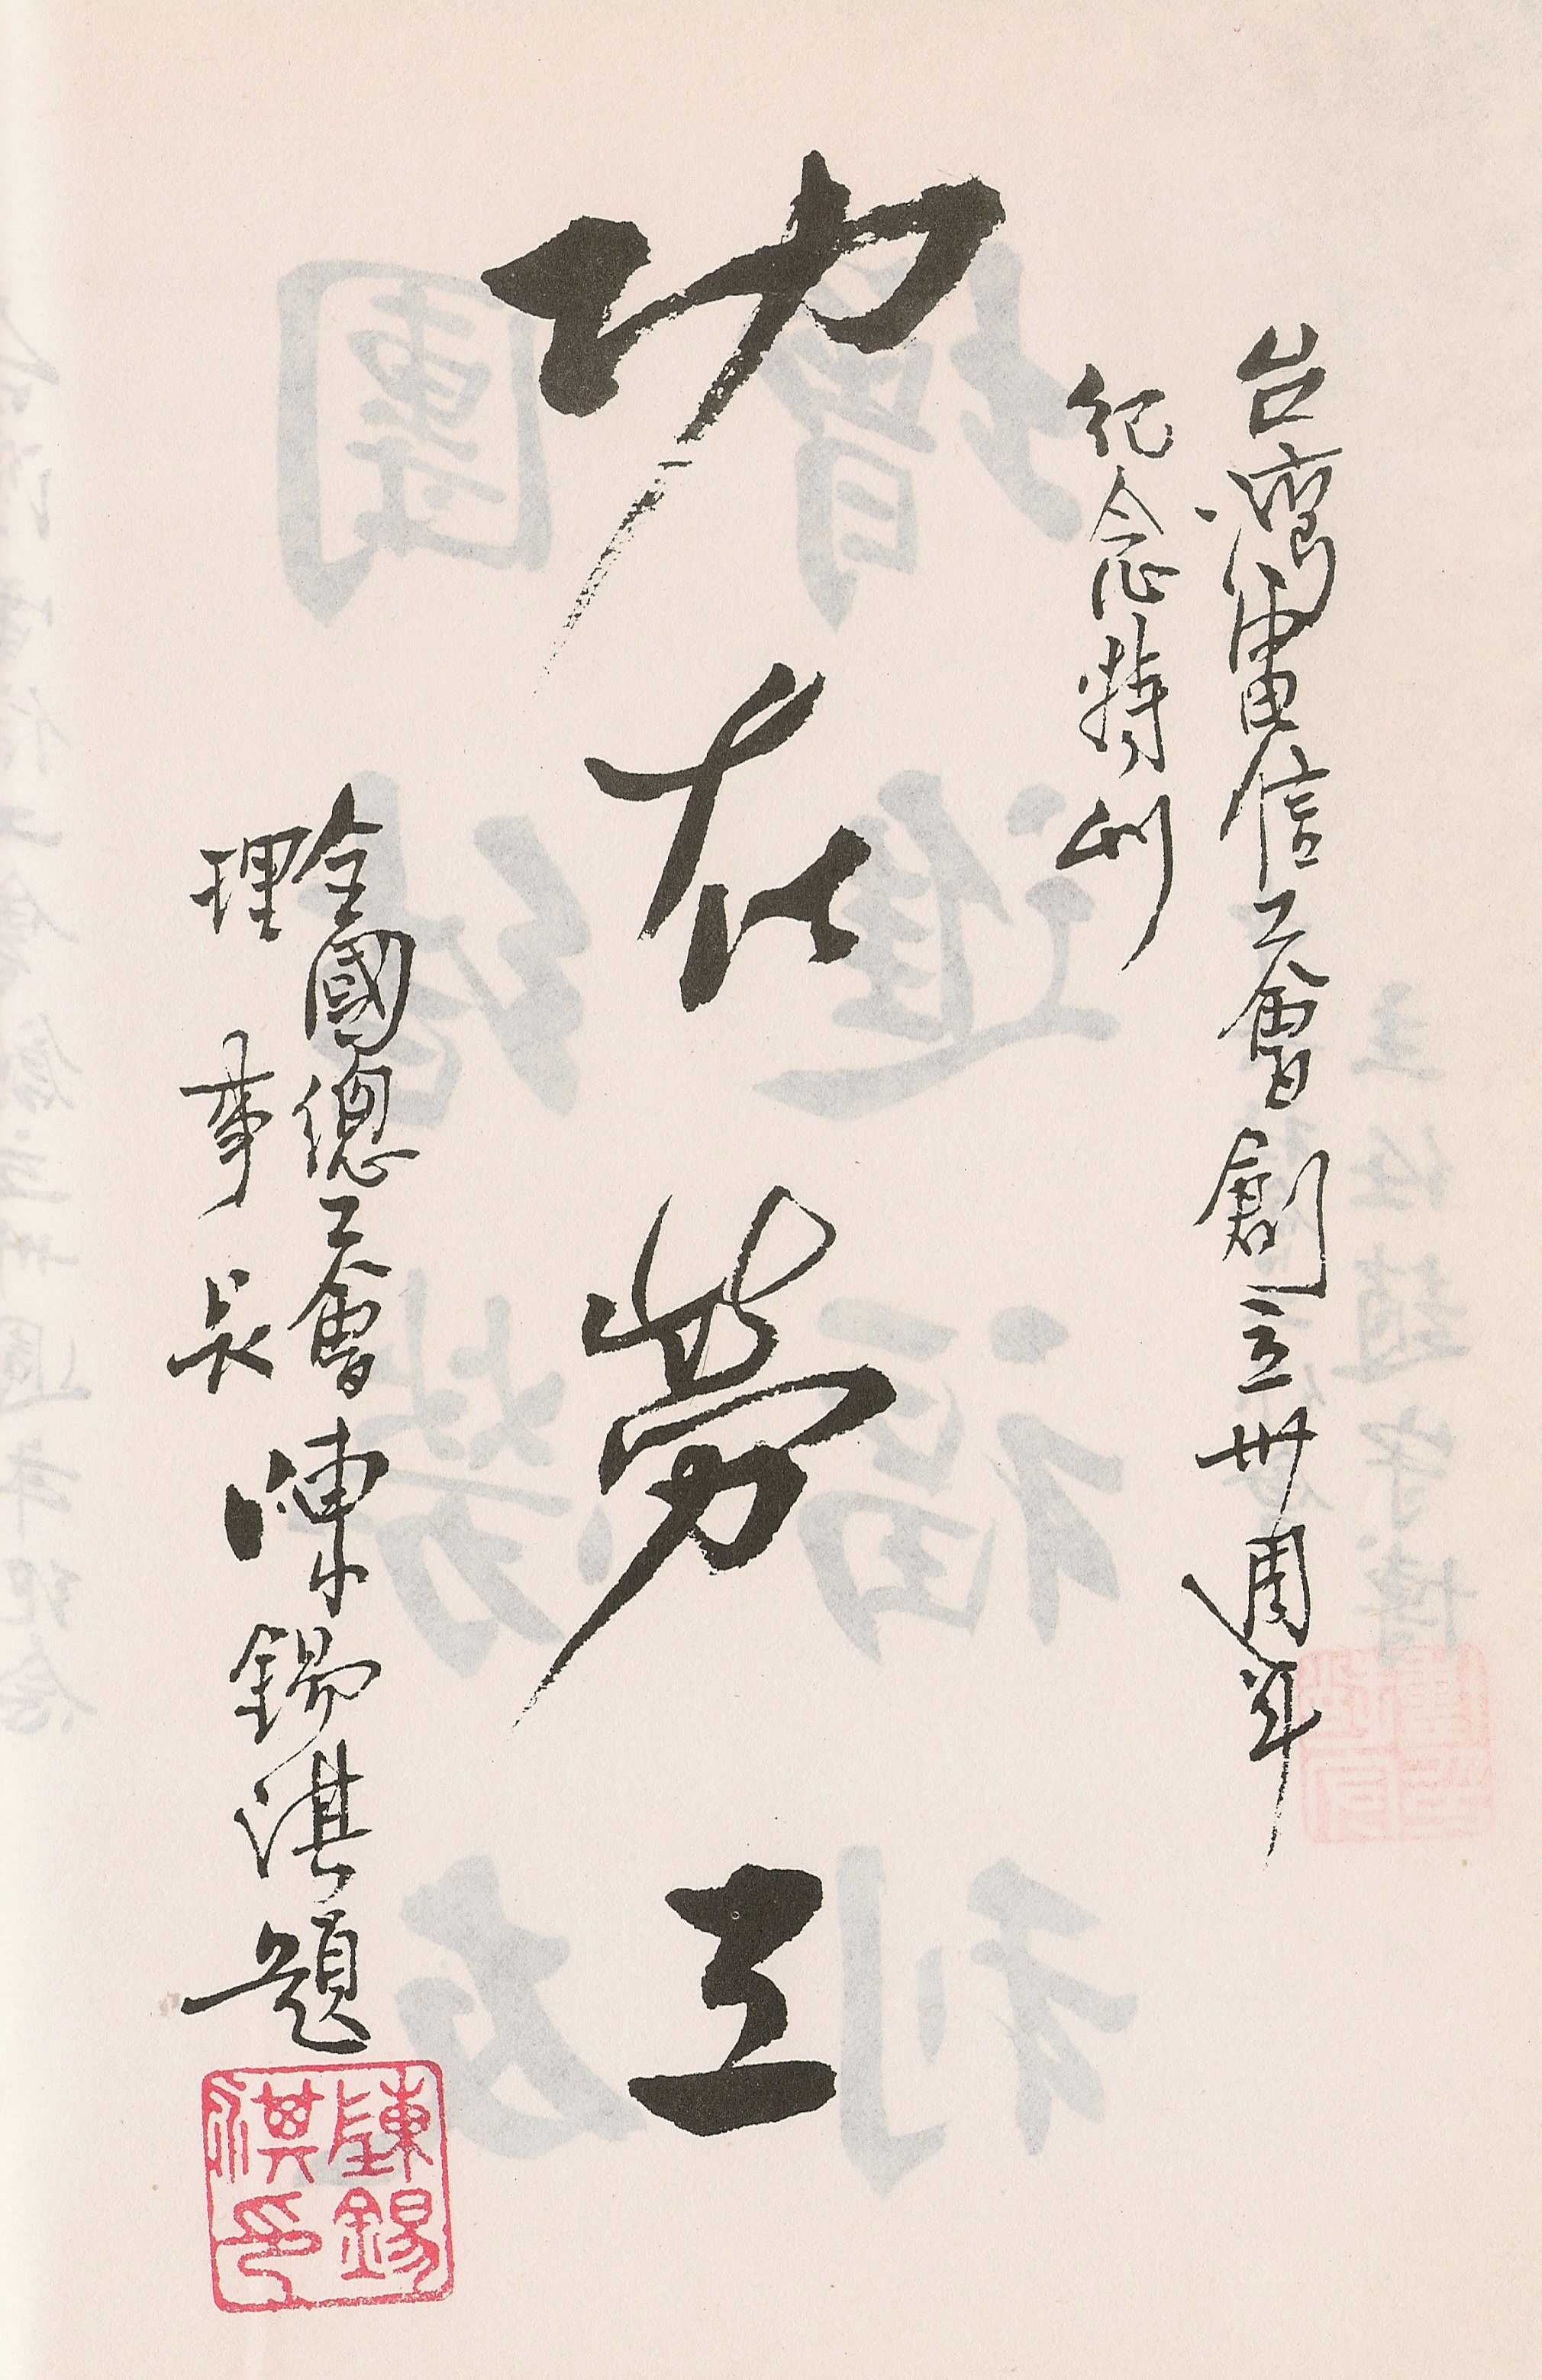 台灣電信工會創立卅週年
紀念特刊
功在勞工
全國總工會
理事長
陳錫淇題
陳錫
淇印